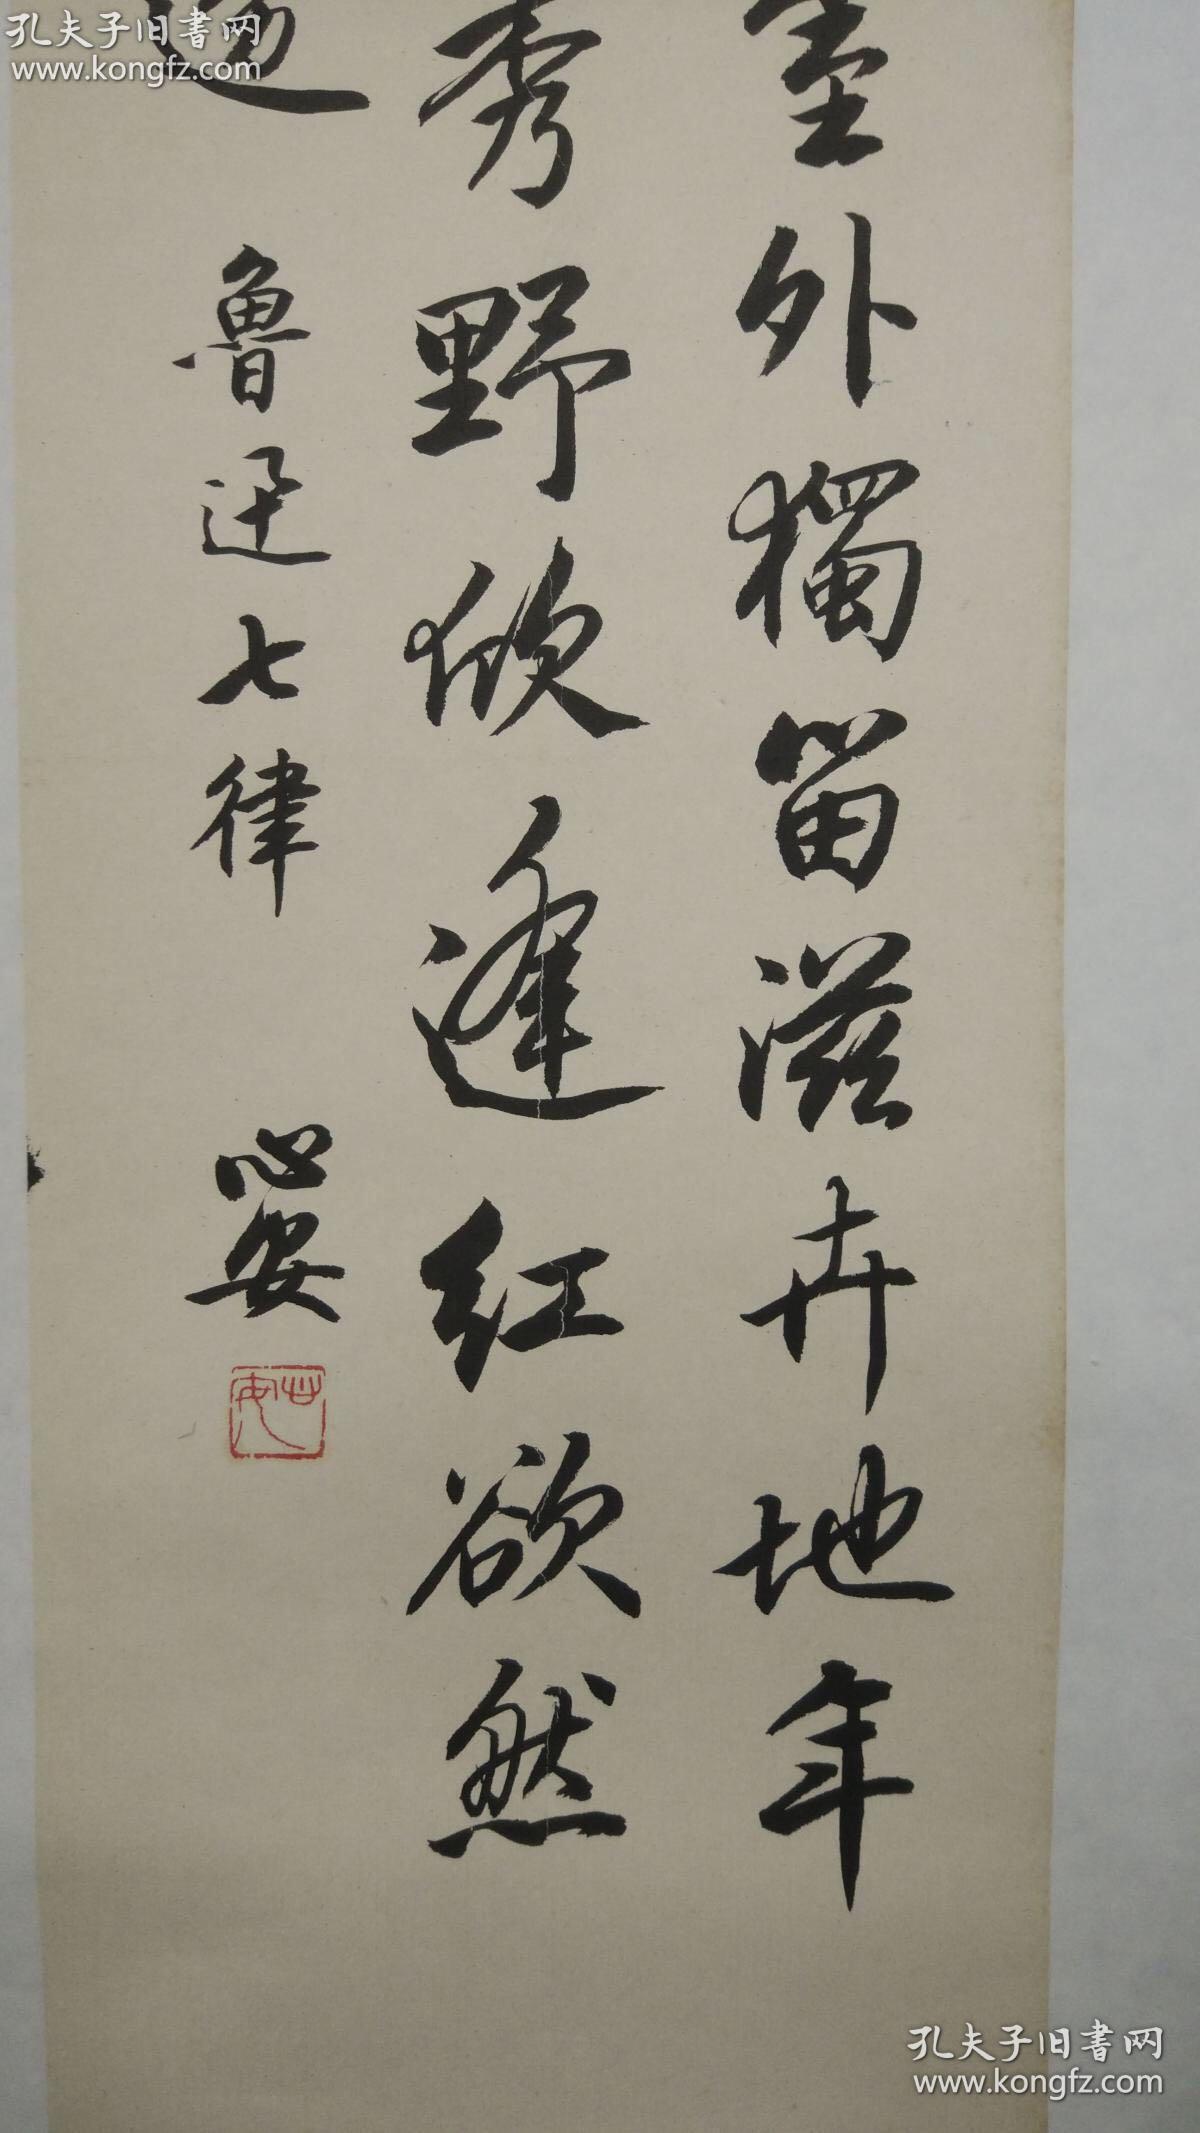 孔夫子旧书网
www.kongfz.com
外獨留滋卉地年
秀野欣逢紅欲然
魯迅七律
心安
孔夫子旧书网
www.kongfz.com